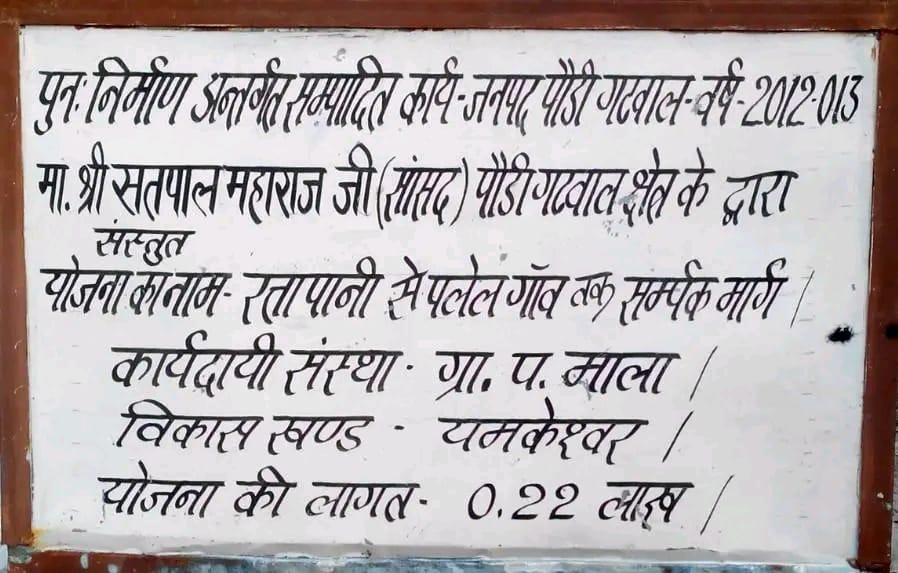 पुनः निर्माण अन्तर्गत सम्पादित कार्य-जनपद पौडी गढवाल-वर्ष-2012-013
मा. श्री सतपाल महाराज जी (सांसद) पौडी गढवाल क्षेत्र के द्वारा
संस्तुत
योजना का नाम- रत्तापानी से पलेल गाँव तक सर्म्पक मार्ग |
कार्यदायी संस्था - ग्रा. प. माला |
विकास खण्ड - यमकेश्वर |
योजना की लागत- 0.22 लाख |